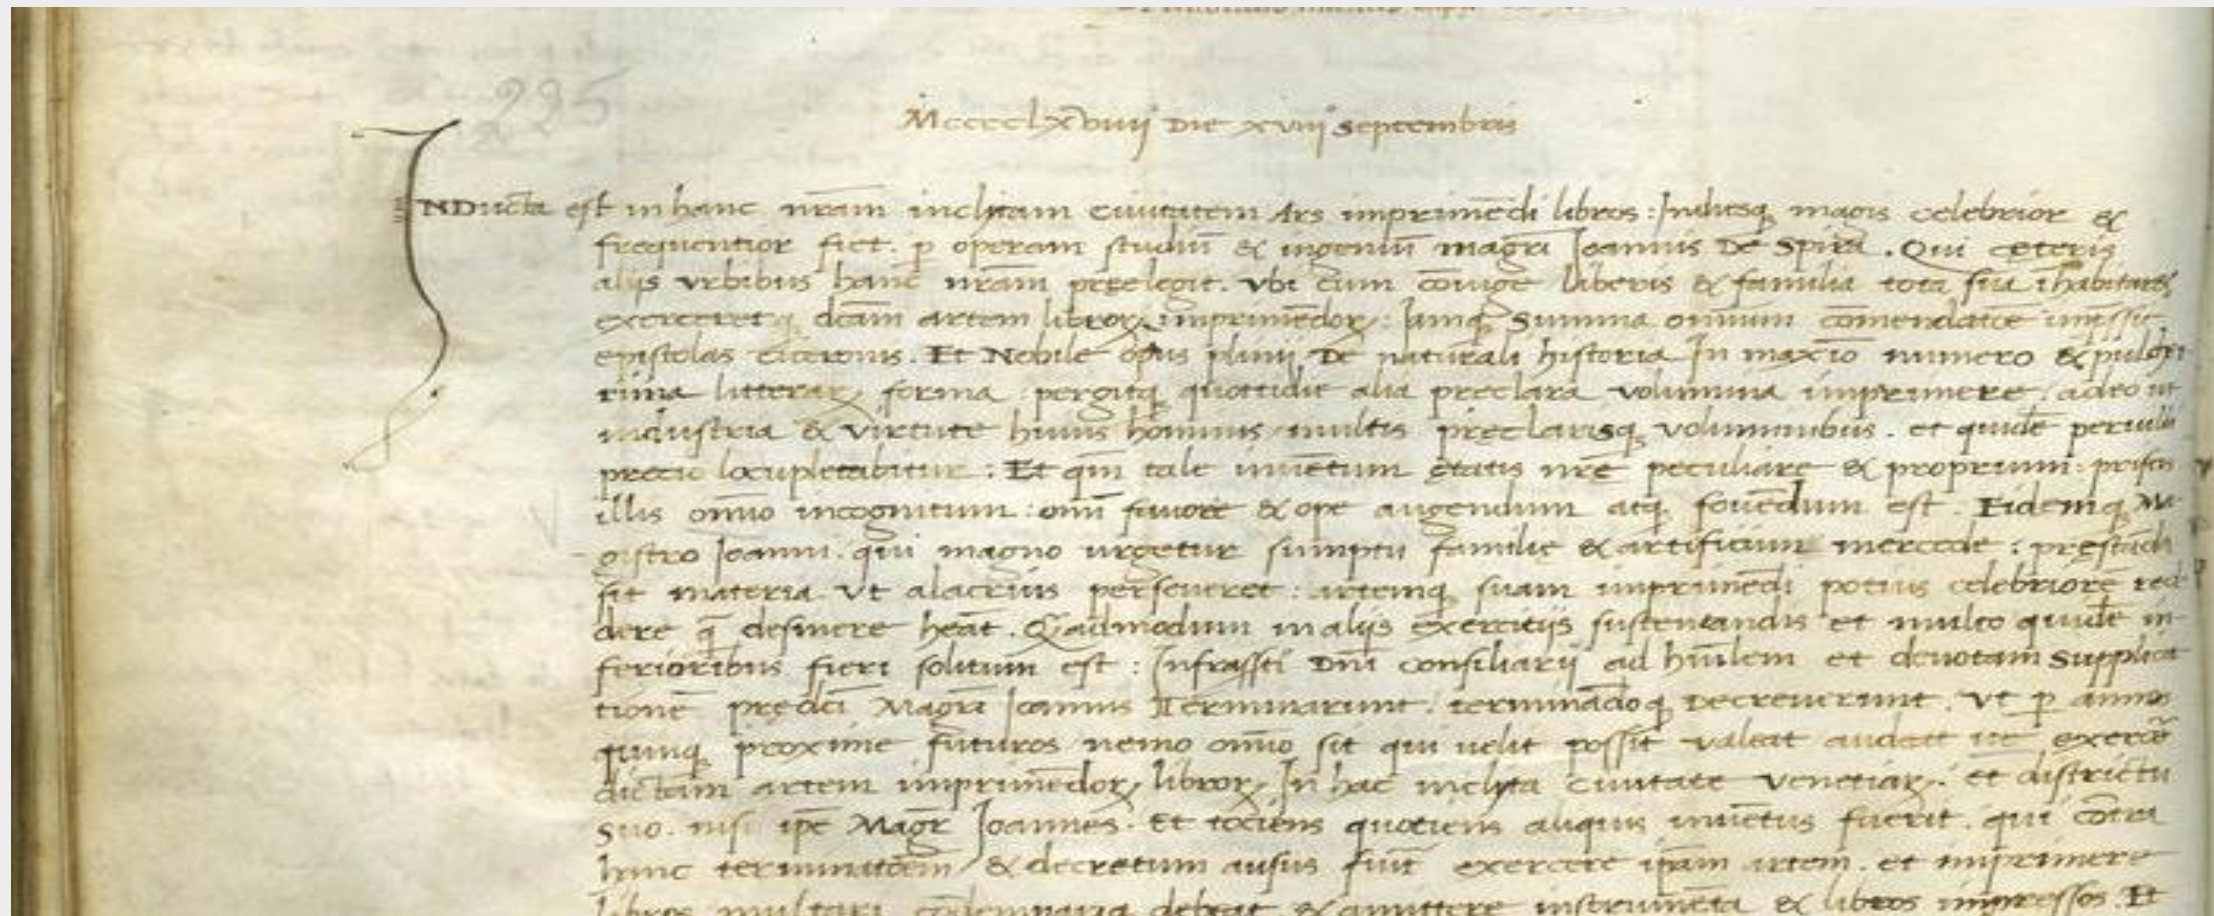 235
Mcccclxviiij Die xviij Septembris
INDucta est in hanc nr̄am inclytam ciuitatem Ars imprimēdi libros: Indiesq3 magis celebrior &
frequentior fiet. p̲ operam studiū & ingeniū magrī Joannis De Spira. Qui ceteris
alijs vrbibus hanc nr̄am pręelegit. vbi cum cōiuge liberis & familia tota sua īhabitaret
exerceretq3 dc̄am artem libroꝝ imprimēdoꝝ: Jamq3 Summa omnium cōmendatōe impssit
epistolas ciceronis. Et Nobile opus plinij De naturali historia In maxīo numero & pulcher
rima litteraꝝ forma pergitq3 quottidie alia preclara volumina imprimere. adeo ut
industria & virtute huius hominis multis preclarisq3 voluminibus. et quidē peruili
precio locupletabitur: Et qm̄ tale inuētum ętatis nr̄ę peculiare & proprium: priscis
illis om̄io incognitum: omī fauore & ope augendum atq3 fouēdum est. Eidemq3 Ma
gistro Joanni. qui magno urgetur sumptu familię & artificum mercede: pręstāda
sit materia. vt alacrius perseueret: artemq3 suam imprimēdi potius celebriorē red
dere q̄ desinere heāt. Q̄admodum in alijs exercitijs sustentandis et multo quidē in
ferioribus fieri solitum est: Infrassti Dnī consiliarij ad hūilem et deuotam Supplica
tionē predcī Magrī Joannis Terminarunt. terminādoq3 Decreuerunt. Vt p̲ annos
quinq3 proxime futuros nemo om̄io sit qui uelit possit valeat audeat ue exercē
dictam artem imprimēdoꝝ libroꝝ In hac inclyta ciuitate venetiaꝝ: et districtu
suo. nisi ip̄e Magr̄ Joannes. Et tociens quotiens aliquis inuētus fuerit. qui cōtra
hanc terminatōem & decretum ausus fūit exercere ip̄am artem. et imprimere
libros multari cōdemnariq3 debeat & amittere instrumēta & libros impressos. Et